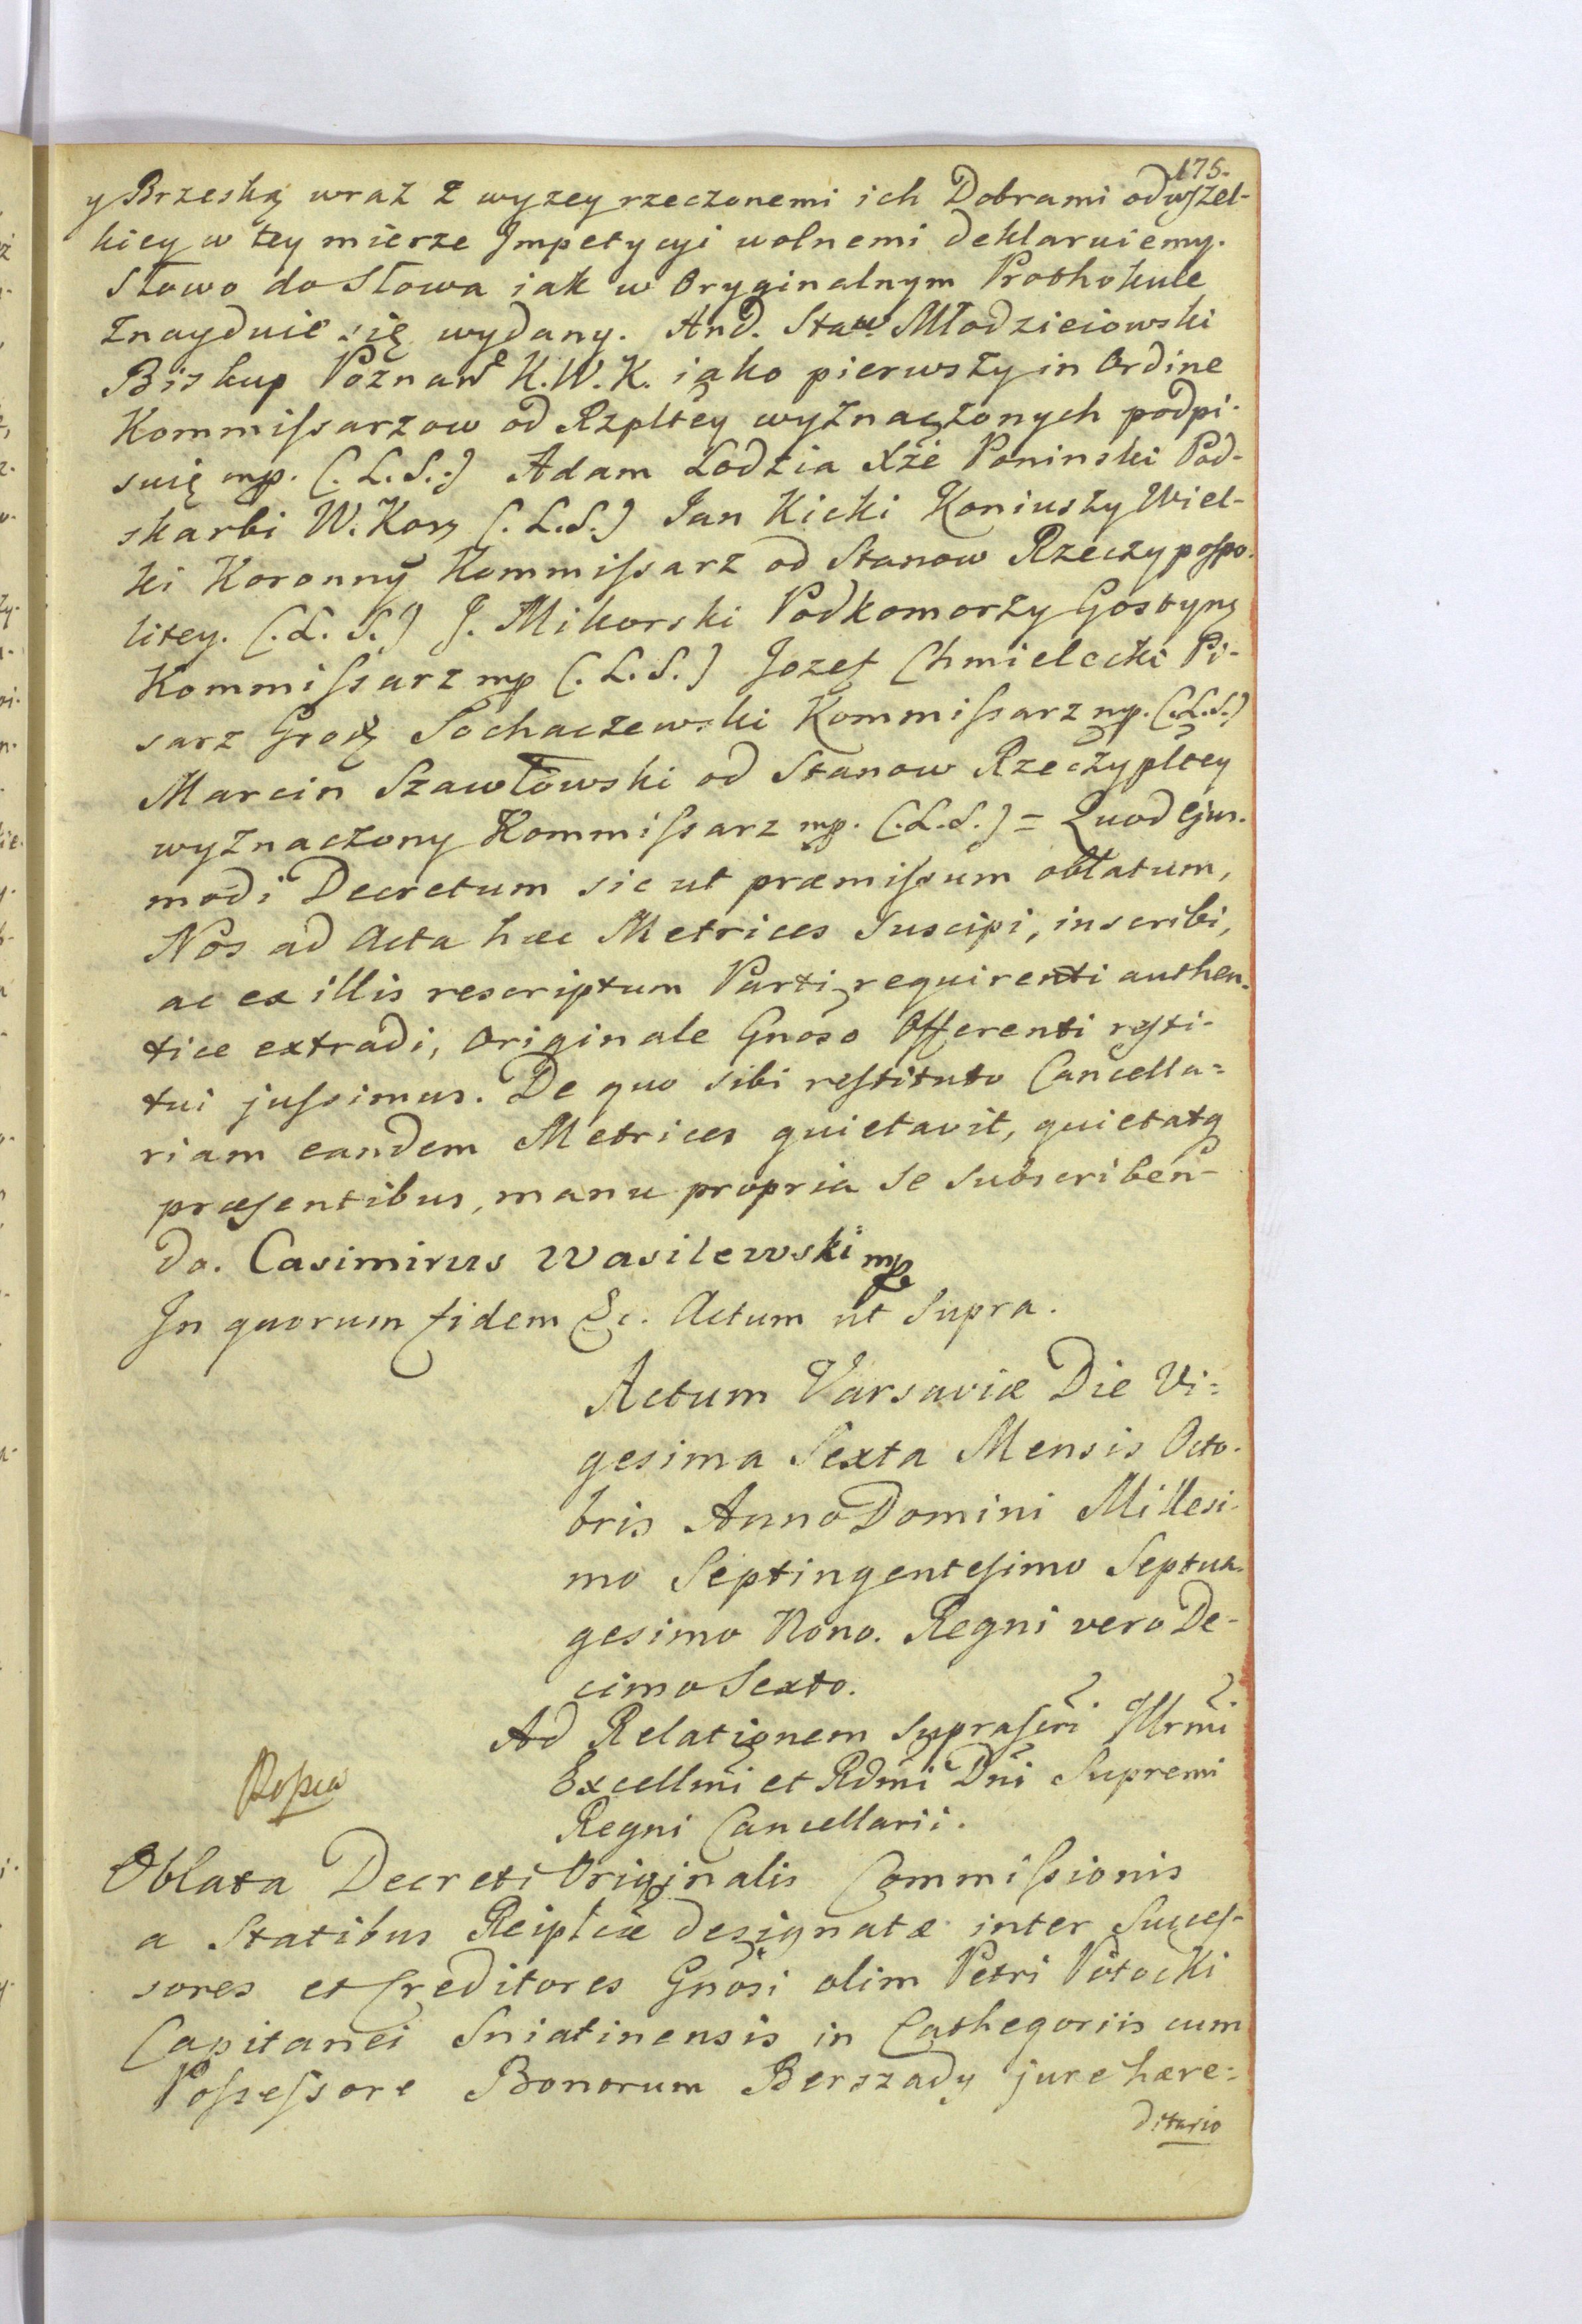 175.
y Brzeską wraz z wyzey rzeczonemi ich Dobrami od wszel-
kiey w tey mierze Impetycyi wolnemi deklaruiemy.
Słowo do Słowa iak w Oryginalnym Prothokule
znayduie się wydany. And. Staw Młodzieiowski
Biskup Poznań K. W. K. iako pierwszy in Ordine
Kommissarzow od Rzpltey wyznaczonych podpi-
suię mp. (.L.S.) Adam Lodzia Xże Poninski Pod-
skarbi W. Kor (.L.S.) Jan Kicki Koniuszy Wiel-
ki Koronny Kommissarz od Stanow Rzeczypospo-
litey. (.L.S.) J. Mikorski Podkomorzy Gostyn
Kommissarz mp (.L.S.) Jozef Chmielecki Pi-
sarz Grodz Sochaczewski Kommissarz mp. (.L.S.)
Marcin Szawłowski od Stanow Rzeczypltey
wyznaczony Kommissarz mp. (.L.S.) = Quod ejus-
modi Decretum sic ut præmissum oblatum,
Nos ad Acta hæc Metrices Suscipi, inscribi,
ac ex illis rescriptum Parti requirenti authen-
tice extradi, Originale Gnoso Offerenti resti-
tui jussimus. De quo sibi restituto Cancella=
riam eandem Metrices quietavit, quietatq
præsentibus, manu propria se subscriben-
do. Casimirus Wasilewski mp
In quorum fidem &c. Actum ut Supra.
Actum Varsaviæ Die Vi=
gesima Sexta Mensis Octo-
bris Anno Domini Millesi-
mo Septingentesimo Septua-
gesimo Nono. Regni vero De-
cimo Sexto.
Ad Relationem suprascri Illrmi
Excellmi et Rdmi Dni Supremi
Regni Cancellarii.
Oblata Decreti Originalis Commissionis
a Statibus Reiplcæ designatæ inter Succes-
sores et Creditores Gnosi olim Petri Potocki
Capitanei Sniatinensis in Cathegoriis cum
Possessore Bonorum Berszady jure hære=
ditario